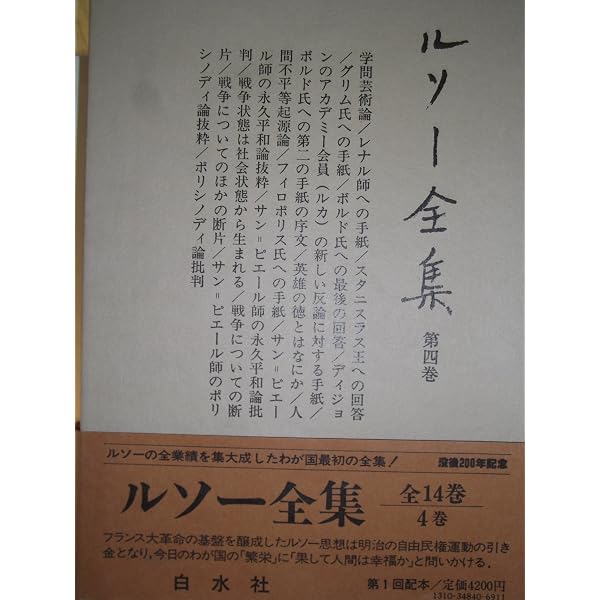 ルソー全集
第四巻
学問芸術論/レナル師への手紙/スタニスラス王への回答
/グリム氏への手紙/ボルド氏への最後の回答/ディジョ
ンのアカデミー会員(ルカ)の新しい反論に対する手紙/
ボルド氏への第二の手紙の序文/英雄の徳とはなにか/人
間不平等起源論/フィロポリス氏への手紙/サン=ピエー
ル師の永久平和論抜粋/サン=ピエール師の永久平和論批
判/戦争状態は社会状態から生まれる/戦争についての断
片/戦争についてのほかの断片/サン=ピエール師のポリ
シノディ論抜粋/ポリシノディ論批判
ルソーの全業績を集大成したわが国最初の全集!
没後200年記念
ルソー全集
全14巻
4巻
フランス大革命の基盤を醸成したルソー思想は明治の自由民権運動の引き
金となり,今日のわが国の「繁栄」に「果して人間は幸福か」と問いかける.
白水社
第1回配本/定価4200円
1310-34840-6911